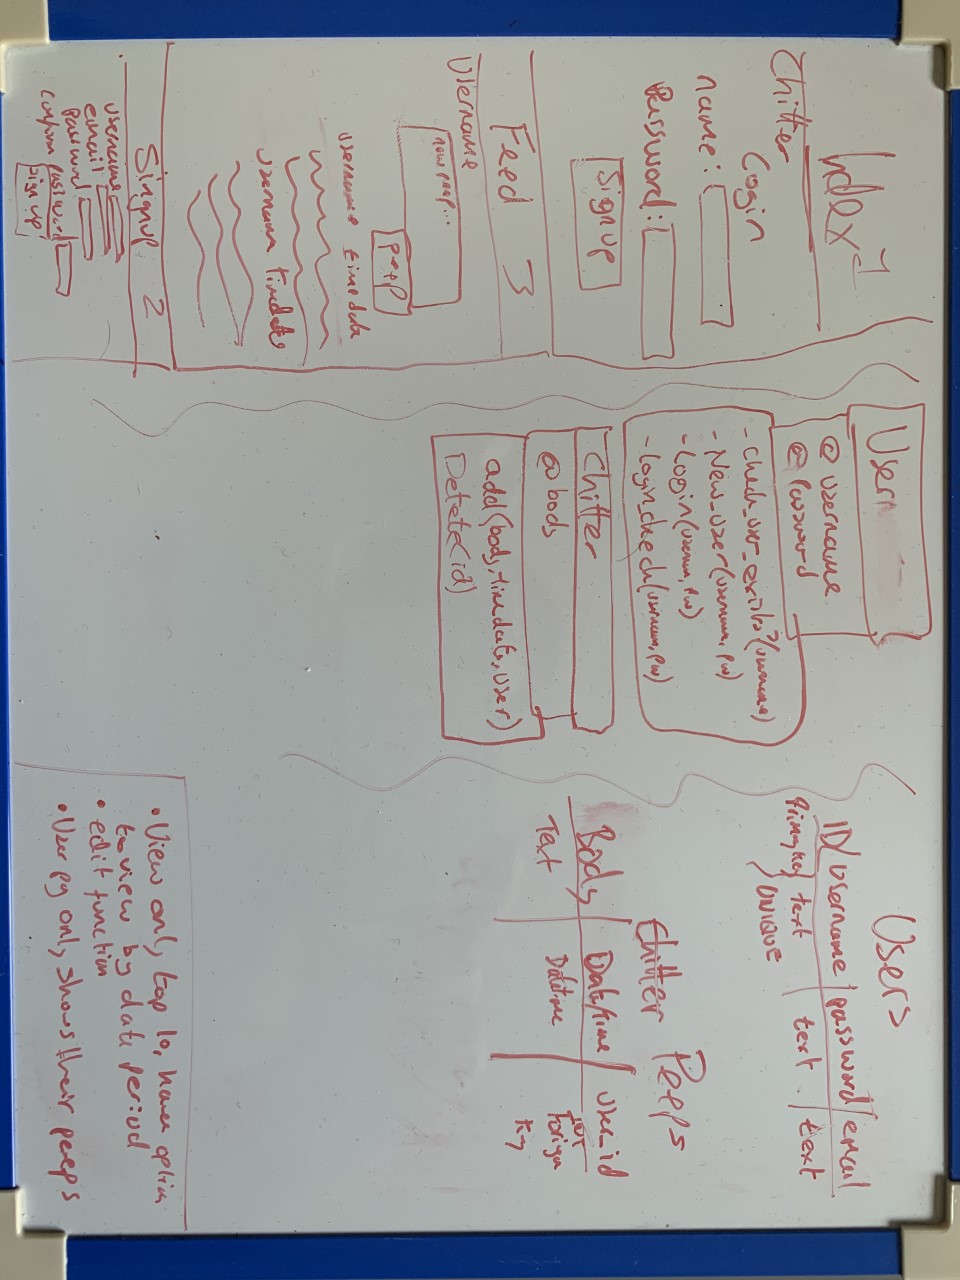 Index 1
Chitter
Login
name:
Password:
Sign up
Feed 3
Username
new peep...
peep
username time date
username timedate
Signup 2
username
email
password
confirm password
sign up
User
@ username
@ password
- check_user_exists?(username)
- New_user(username, pw)
- Login(usernam, pw)
- login_check(usernam, pw)
Chitter
@ bods
add(body, timedate, user)
Delete(id)
Users
ID/username/password/email
Primary key text / text / text
UNIQUE
Chitter Peeps
Body Date/time / user_id
Text Datetime int
Foreign
Key
• View only top 10, have option
to view by date period
• edit function
• User pg only shows their peeps